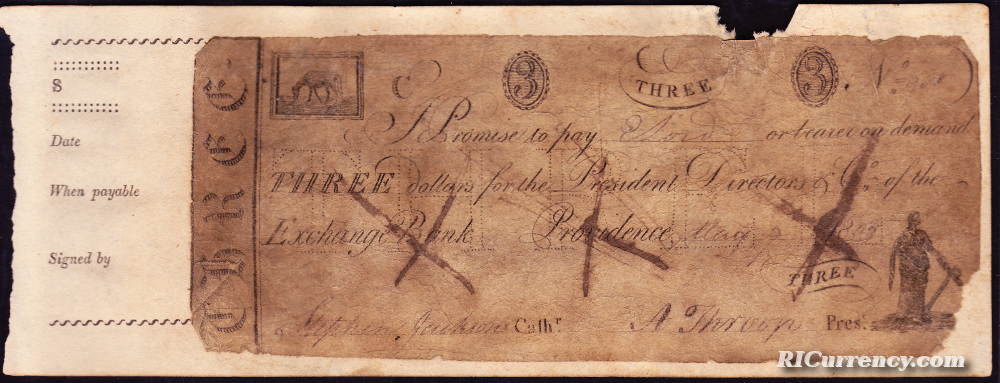 $
Date
When payable
Signed by
3 THREE 3 No
C
I Promise to pay or bearer on demand
THREE dollars for the President Directors & Co. of the
Exchange Bank Providence May 2
THREE
Stephen Jackson Cashr. A. Throop Prest.
RICurrency.com